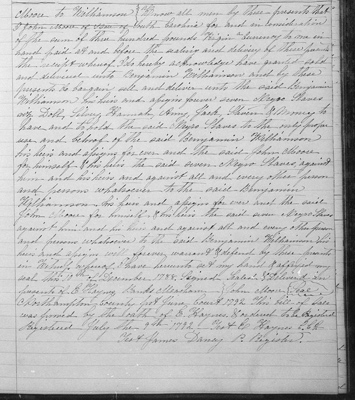 Moore to Williamson } Know all men by these presents that
I John Moore
of the sum of three hundred pounds Virgin Currency to me in
hand paid at and before the sealing and delivery of these presents
the receipt whereof I do hereby acknowledge have granted sold
and delivered unto Benjamin Williamson and by these
presents do bargain sell and deliver unto the said Benjamin
Williamson his heirs and assigns forever seven Negro Slaves
viz Doll, Hannah Amy Jack to
have and to hold the said Negro Slaves to the only proper
use and behoof of the said Benjamin Williamson
his heirs and assigns for ever and the said John Moore
for himself his heirs the said seven Negro Slaves against
him and his heirs and against all and every other person
and persons whatsoever to the said Benjamin
Williamson his heirs and assigns for ever and the said
John Moore for himself & his heirs the said seven Negro Slaves
against him and his heirs and against all and every other person
and persons whatsoever to the said Benjamin Williamson his
heirs and assigns will forever warrant & defend by these presents
in Witness whereof I have hereunto set my hand & affixed my
seal December Signed Sealed & delivered in
presents of E Haynes John Moore Seal
Northampton County Court 1792 This bill of Sale
was proved by the oath of E. Haynes & ordered to be Registered
Registered July the 9th 1792 Test Haynes
Test James Dancy P. Register